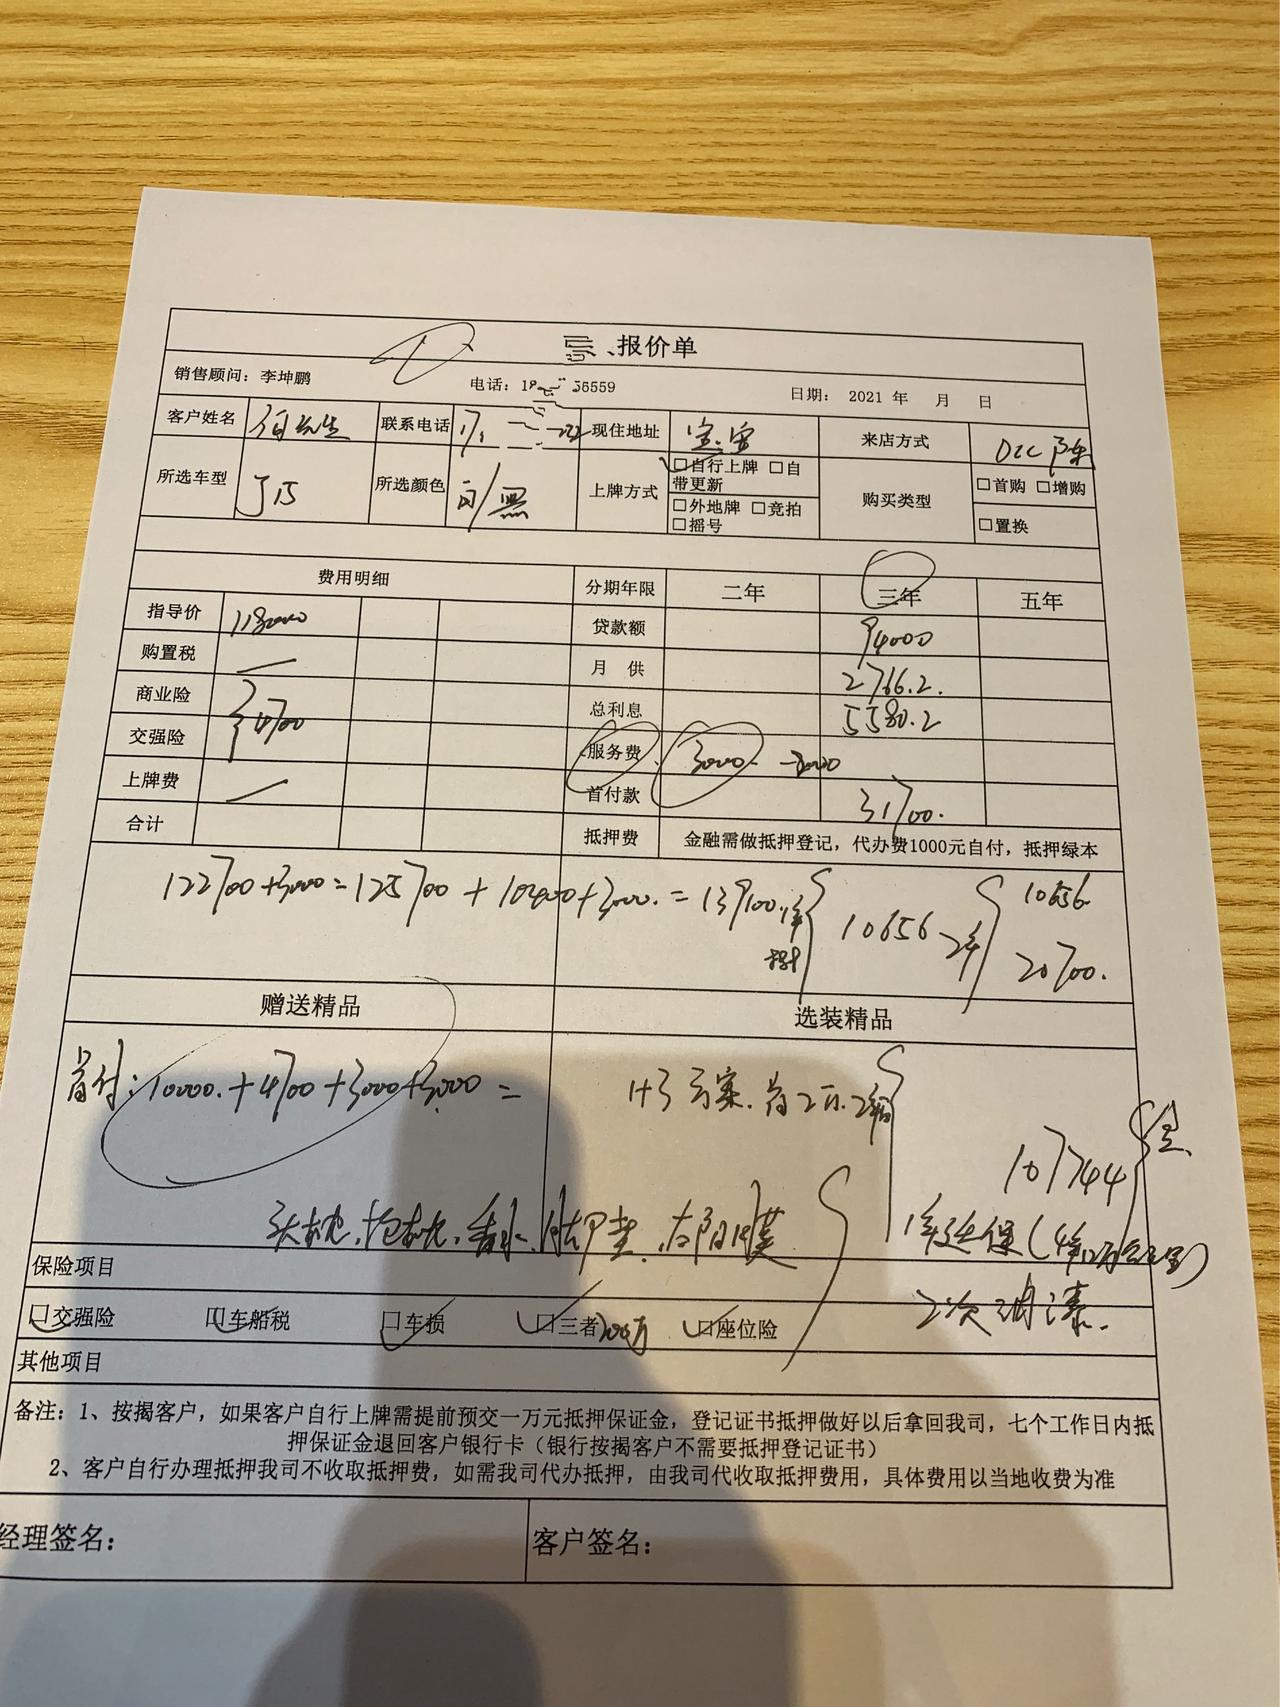 报价单
销售顾问：李坤鹏 电话：18 56559 日期： 2021 年 月 日
客户姓名 先生 联系电话 现住地址 宝安 来店方式 DCC
所选车型 所选颜色 白/黑 上牌方式 ☐自行上牌 ☐自带更新 ☐外地牌 ☐竞拍 ☐摇号 购买类型 ☐首购 ☐增购 ☐置换
费用明细 分期年限 二年 三年 五年
指导价 118000 贷款额 94000
购置税 月 供 2766.2.
商业险 4700 总利息 5580.2
交强险 服务费 3000 -3000
上牌费 首付款 31700.
合计 抵押费 金融需做抵押登记，代办费1000元自付，抵押绿本
122700+3000=125700+10400+3000.=139100. 10656 10656.
20700.
赠送精品 选装精品
首付：10000.+4700+3000+3000=
1+3方案.
107744
头枕、抱枕、香水、 太阳膜 延保
2次
保险项目
☐交强险 ☐车船税 ☐车损 ☐三者200万 ☐座位险
其他项目
备注：1、按揭客户，如果客户自行上牌需提前预交一万元抵押保证金，登记证书抵押做好以后拿回我司，七个工作日内抵
押保证金退回客户银行卡（银行按揭客户不需要抵押登记证书）
2、客户自行办理抵押我司不收取抵押费，如需我司代办抵押，由我司代收取抵押费用，具体费用以当地收费为准
经理签名： 客户签名：